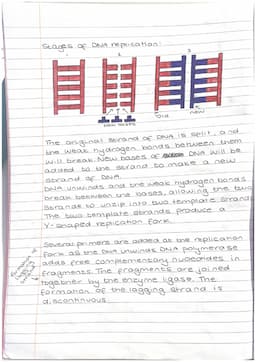 Stages of DNA replication:
1 2 3
new bases
old new
The original strand of DNA is split, and
the weak hydrogen bonds between them
will break. New bases of DNA will be
added to the strand to make a new
strand of DNA.
DNA unwinds and the weak hydrogen bonds
break between the bases, allowing the two
strands to unzip into two template strands
The two template strands produce a
Y-shaped replication fork.
Several primers are added as the replication
fork as the DNA unwinds DNA polymerase
adds free complementary nucleotides in
fragments. The fragments are joined
together by the enzyme ligase. The
formation of the lagging strand is
discontinuous.